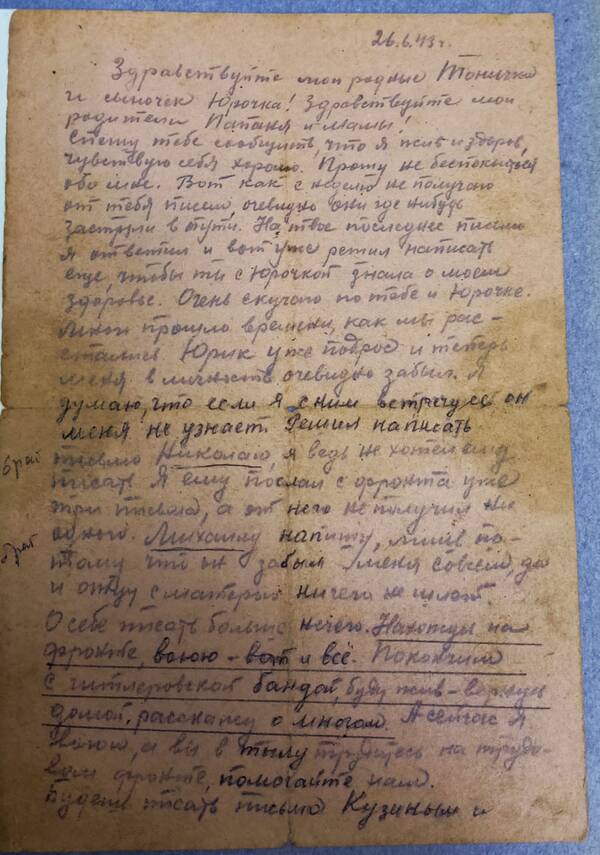 26.6.43 г.
Здравствуйте мои родные Тоничка
и сыночек Юрочка! Здравствуйте мои
родители Папаня и мамы!
Спешу тебе сообщить, что я жив и здоров,
чувствую себя хорошо. Прошу не беспокоиться
обо мне. Вот как с неделю не получаю
от тебя писем, очевидно они где нибудь
застряли в пути. На твое последнее письмо
я ответил и вот уже решил написать
еще, чтобы ты с Юрочкой знала о моем
здоровье. Очень скучаю по тебе и Юрочке.
Много прошло времени, как мы рас-
стались. Юрик уже подрос и теперь
меня в личность очевидно забыл. Я
думаю, что если я с ним встречусь он
меня не узнает. Решил написать
брат
письмо Николаю, я ведь не хотел ему
писать. Я ему послал с фронта уже
три письма, а от него не получил ни
одного. Михаилу напишу, по-
брат
тому что он забыл меня совсем, да
и отцу с матерью ничего не шлет.
О себе писать больше нечего. Нахожусь на
фронте, воюю – вот и всё. Покончим
с гитлеровской бандой, буду жив – вернусь
домой, расскажу о многом. А сейчас я
воюю, а вы в тылу трудитесь на трудо-
вом фронте, помогайте нам.
Будешь писать письма Кузиным и